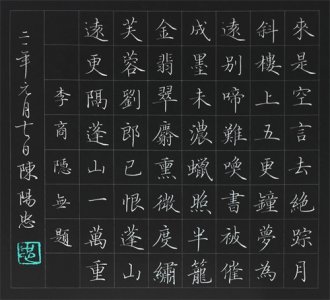 來是空言去絕踪月
斜樓上五更鐘夢為
遠別啼難喚書被催
成墨未濃蠟照半籠
金翡翠麝熏微度繡
芙蓉劉郎已恨蓬山
遠更隔蓬山一萬重
李商隱無題
年元月日陳陽忠